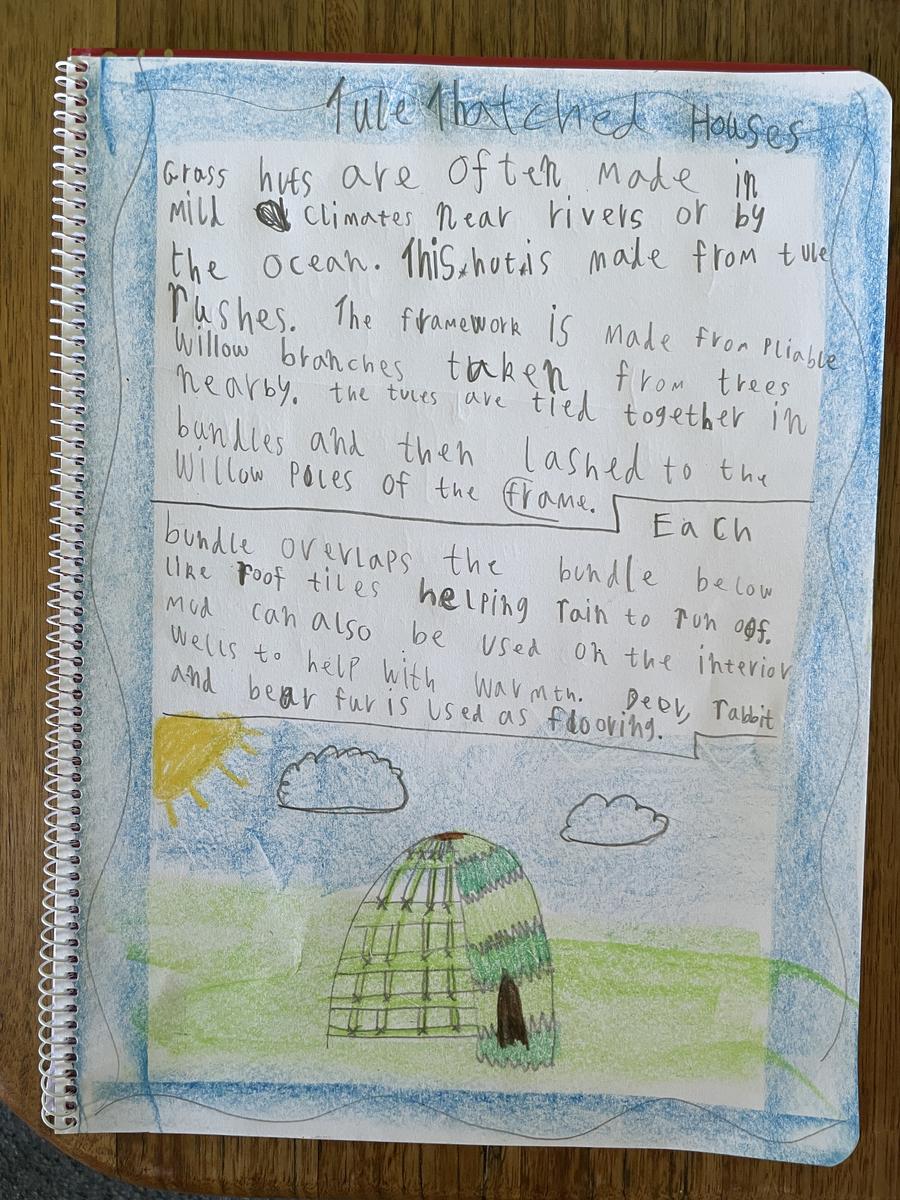 Tule Thatched Houses
Grass huts are often made in
mild climates near rivers or by
the ocean. This hut is made from tule
rushes. The framework is made from pliable
willow branches taken from trees
nearby. the tules are tied together in
bundles and then lashed to the
willow poles of the frame.
Each
bundle overlaps the bundle below
like roof tiles helping rain to run off.
mud can also be used on the interior
wells to help with warmth. Deer, rabbit
and bear fur is used as flooring.